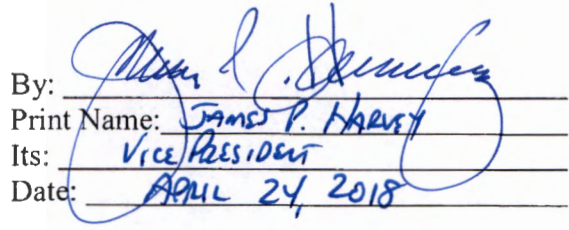 By:
Print Name: JAMES P. HARVEY
Its: VICE PRESIDENT
Date: APRIL 24, 2018